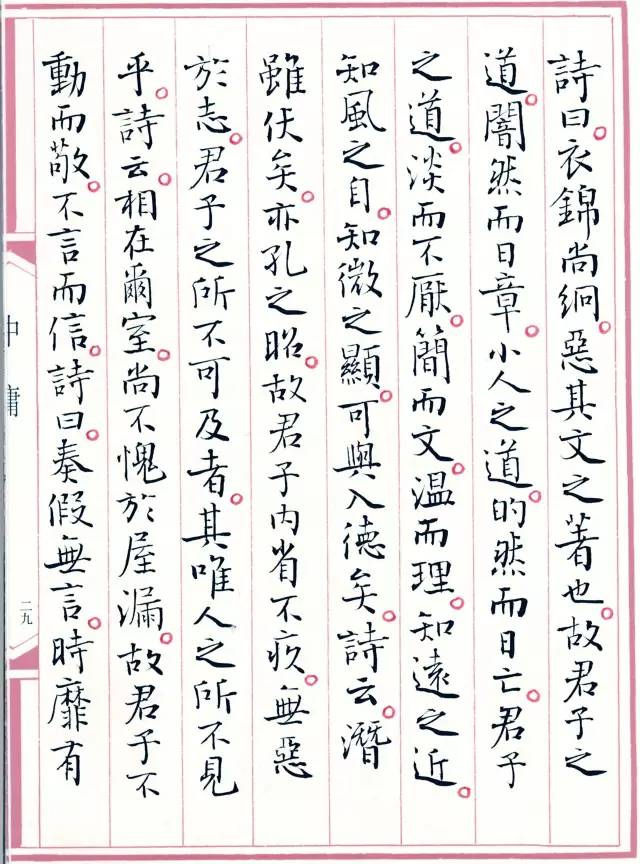 詩曰。衣錦尚絅。惡其文之著也。故君子之
道。闇然而日章。小人之道。的然而日亡。君子
之道。淡而不厭。簡而文。温而理。知遠之近。
知風之自。知微之顯。可與入德矣。詩云。潛
雖伏矣。亦孔之昭。故君子內省不疚。無惡
於志。君子之所不可及者。其唯人之所不見
乎。詩云。相在爾室。尚不愧於屋漏。故君子不
動而敬。不言而信。詩曰。奏假無言。時靡有
中庸
二九